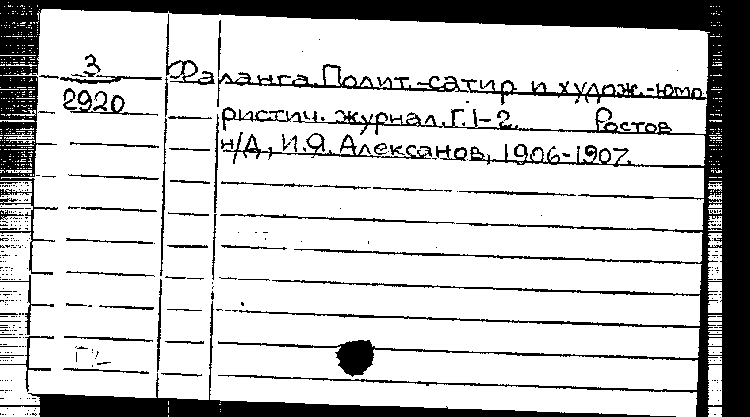 3
2920
Фаланга. Полит.-сатир и худож.-юмо
ристич. журнал. Г. 1-2. Ростов
н/Д, И.Я. Алексанов, 1906-1907.